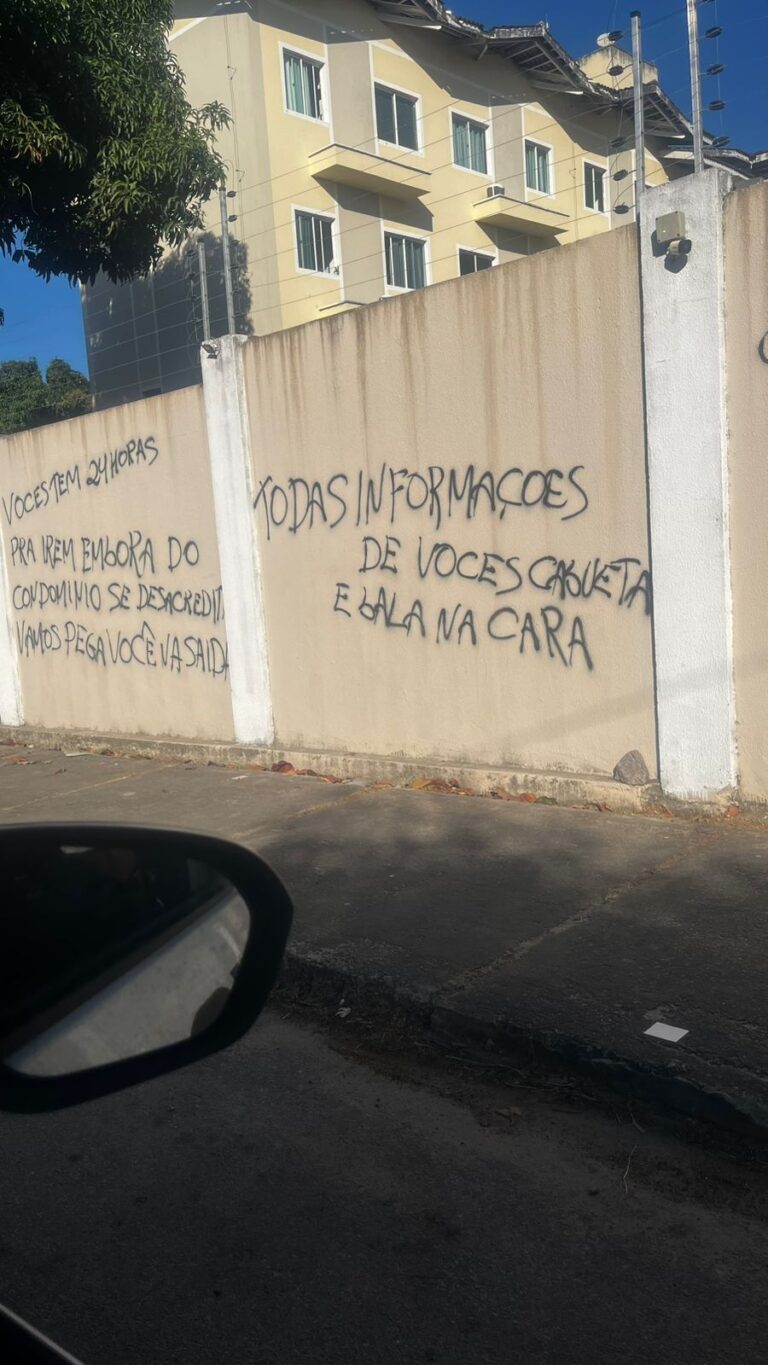 VOCES TEM 24 HORAS
PRA IREM EMBORA DO
CONDOMINIO SE DESACREDITA
VAMOS PEGA VOCÊ NA SAIDA
TODAS INFORMAÇOES
DE VOCES CAGUETA
E BALA NA CARA